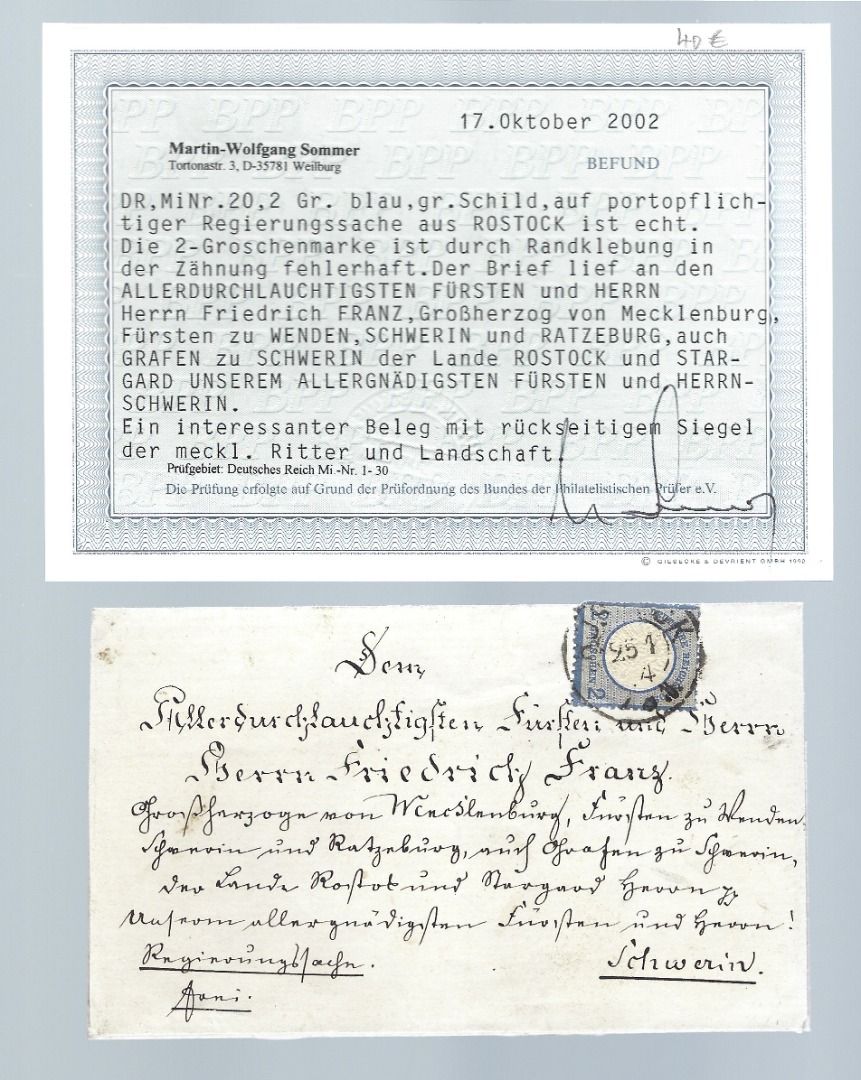 40 €
17.Oktober 2002
Martin-Wolfgang Sommer
Tortonastr. 3, D-35781 Weilburg
BEFUND
DR,MiNr.20,2 Gr. blau,gr.Schild,auf portopflich-
tiger Regierungssache aus ROSTOCK ist echt.
Die 2-Groschenmarke ist durch Randklebung in
der Zähnung fehlerhaft.Der Brief lief an den
ALLERDURCHLAUCHTIGSTEN FÜRSTEN und HERRN
Herrn Friedrich FRANZ,Großherzog von Mecklenburg,
Fürsten zu WENDEN,SCHWERIN und RATZEBURG,auch
GRAFEN zu SCHWERIN der Lande ROSTOCK und STAR-
GARD UNSEREM ALLERGNÄDIGSTEN FÜRSTEN und HERRN-
SCHWERIN.
Ein interessanter Beleg mit rückseitigem Siegel
der meckl. Ritter und Landschaft.
Prüfgebiet: Deutsches Reich Mi.-Nr. 1- 30
Die Prüfung erfolgte auf Grund der Prüfordnung des Bundes der Philatelistischen Prüfer e.V.
© GIESECKE & DEVRIENT GMBH 1990
25 1
4
Dem
Allerdurchlauchtigsten Fürsten und Herrn
Herrn Friedrich Franz.
Großherzoge von Mecklenburg, Fürsten zu Wenden
Schwerin und Ratzeburg, auch Grafen zu Schwerin,
der Lande Rostok und Stargard Herrn
Unserm allergnädigsten Fürsten und Herrn!
Regierungssache.
Schwerin.